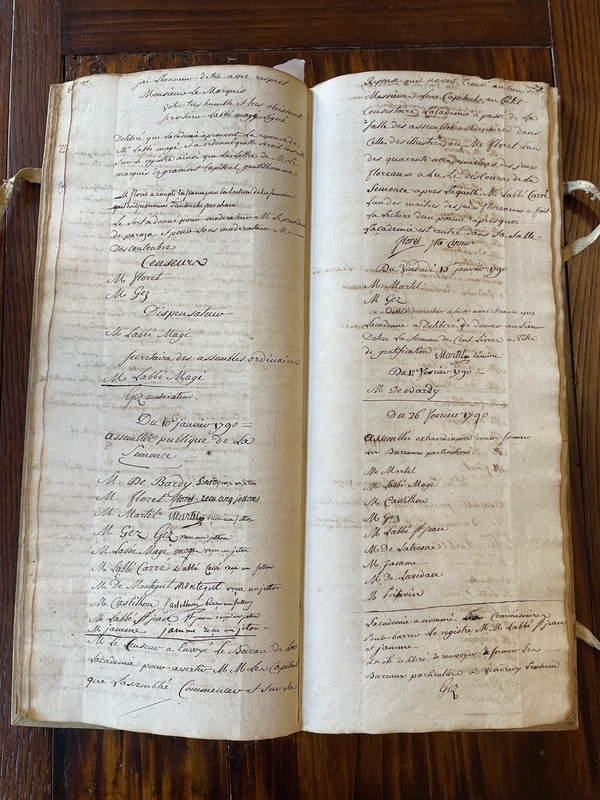 j'ai l'honneur d'etre avec respect
Monsieur Le Marquis
votre tres humble et tres obeissant
serviteur Labbé magi signé
Deliberé que Lacademie aprouvoit La reponse de
Mr Labbé magi et a ordonné quelle seroit inserée
Sur Le registre ainsi que La Lettre de M. Le
marquis de gramont Capitoul gentilhomme
M floret a rempli la seance par la lecture de la semonce
quil doit prononcer dimanche prochain
Le Sort a donné pour moderateur M Le president
de paraza et pour sous moderateur M
Descouloubre
Censeurs
M floret
M Gez
Dispensateur
M Labbé Magi
Secretaire des assemblées ordinaires
M Labbé Magi
Gez moderateur.
Du 10e janvier 1790 =
assemblée publique de La
Semonce
M De Bardy Bardy reçu un jetton
M floret floret reçu cinq jettons
M. Martel Martel reçu un jetton
M Gez Gez reçu un jetton
M Labbé Magi magi reçu un jetton
M Labbé Carré L'abbé Carré reçu un jetton
M De Montegut montegut reçu un jetton.
M Castilhon Castilhon reçu un jetton
M Labbé St jean St jean reçu un jetton
M jamme jamme reçu un jeton
M Le Censeur a envoyé Le Bedeau de La
Lacademie pour avertir M M Les Capitouls
que Lassemblée Commencoit et sur sa
Reponse quil n'avoit trouvé aucun de
Messieurs Les Capitouls au petit
Consistoire Lacademie a passé de La
Salle des assemblées ordinaires dans
Celle des illustres ou M floret Lun
des quarante academiciens des jeux
floreaux a Lu Le discours de La
Semonce apres Laquelle M Labbé Carré
Lun des maitres des jeux floreaux a fait
La Lecture d'un poeme apres quoi
Lacademie est rentrée dans sa salle
floret
Du Vendredi 15 janvier 1790
M Martel
M Gez
Lacademie a deliberé de donner au sieur
Delire La Somme de Cent Livres a titre
de gratification Martel
Du 12e fevrier 1790 =
M De Bardy
Du 26 fevrier 1790
assemblée extraordinaire pour former
Les Bureaux particuliers
M Martel
M Labbé Magi
M Castilhon
M Gez
M Labbé St jean
M De Latresne
M Jamme
M De Lavedan
M Poitevin
Lacademie a nommé Commissaires
pour barrer Le registre M M Labbé St jean
et jamme
La été deliberé de renvoyer a former Les
Bureaux particuliers a Vendredi prochain
Gez